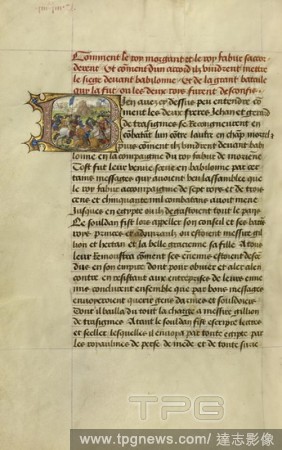 Comment le roy morgant et le roy fabur sacor
derent Et comment dun accord ilz vindrent mettre
le siege devant babilonne Et de la grant bataille
qui la fut ou les deux roys furent desconfis
Bien avez cy dessus peu entendre com
ment les deux freres Jehan et gerard
de trasignies se Recongneurent en
combatant lun contre lautre en champ mortel
puis comment ilz vindrent devant babi
lonne en la compaignie du roy fabur de moriene
Tost fut leur venue scevue en babilonne par cer
tains messages qui avoient ben lassamblee que
le roy fabur accompaignie de sept roys et de trois
cens et chinquante mil combatans avoit mene
Jusques en egypte ou ilz degastoient tout le pays
Le souldan fist lors appeller son conseil et ses barõs
roys princes et admiraulx ou estoient messire gil
lion et hertan et la belle gracienne sa fille A tous
leur Remonstra comment ses ennemis estoient descẽ
dus en son empire Dont pour obvier et aler alen
contre en resistant aux entreprises de leurs enne
mis conclurent ensemble que par bons messages
envoyeroient querir gens darmes et souldoiers
Dont il bailla du tout la charge a messire gillion
de trasignies Atant le souldan fist escripre lettres
et seeller lesquelles il envoya par toute egypte par
les royaulmes de perse de mede et de toute surie
TPG
www.tpgnews.com/達志影像